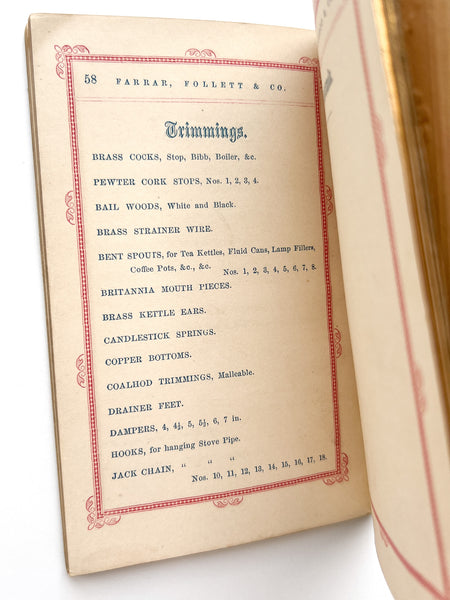 58 FARRAR, FOLLETT & CO.
Trimmings.
BRASS COCKS, Stop, Bibb, Boiler, &c.
PEWTER CORK STOPS, Nos. 1, 2, 3, 4.
BAIL WOODS, White and Black.
BRASS STRAINER WIRE.
BENT SPOUTS, for Tea Kettles, Fluid Cans, Lamp Fillers,
Coffee Pots, &c., &c. Nos. 1, 2, 3, 4, 5, 6, 7, 8.
BRITANNIA MOUTH PIECES.
BRASS KETTLE EARS.
CANDLESTICK SPRINGS.
COPPER BOTTOMS.
COALHOD TRIMMINGS, Malleable.
DRAINER FEET.
DAMPERS, 4, 4½, 5, 5½, 6, 7 in.
HOOKS, for hanging Stove Pipe.
JACK CHAIN, " " "
Nos. 10, 11, 12, 13, 14, 15, 16, 17, 18.